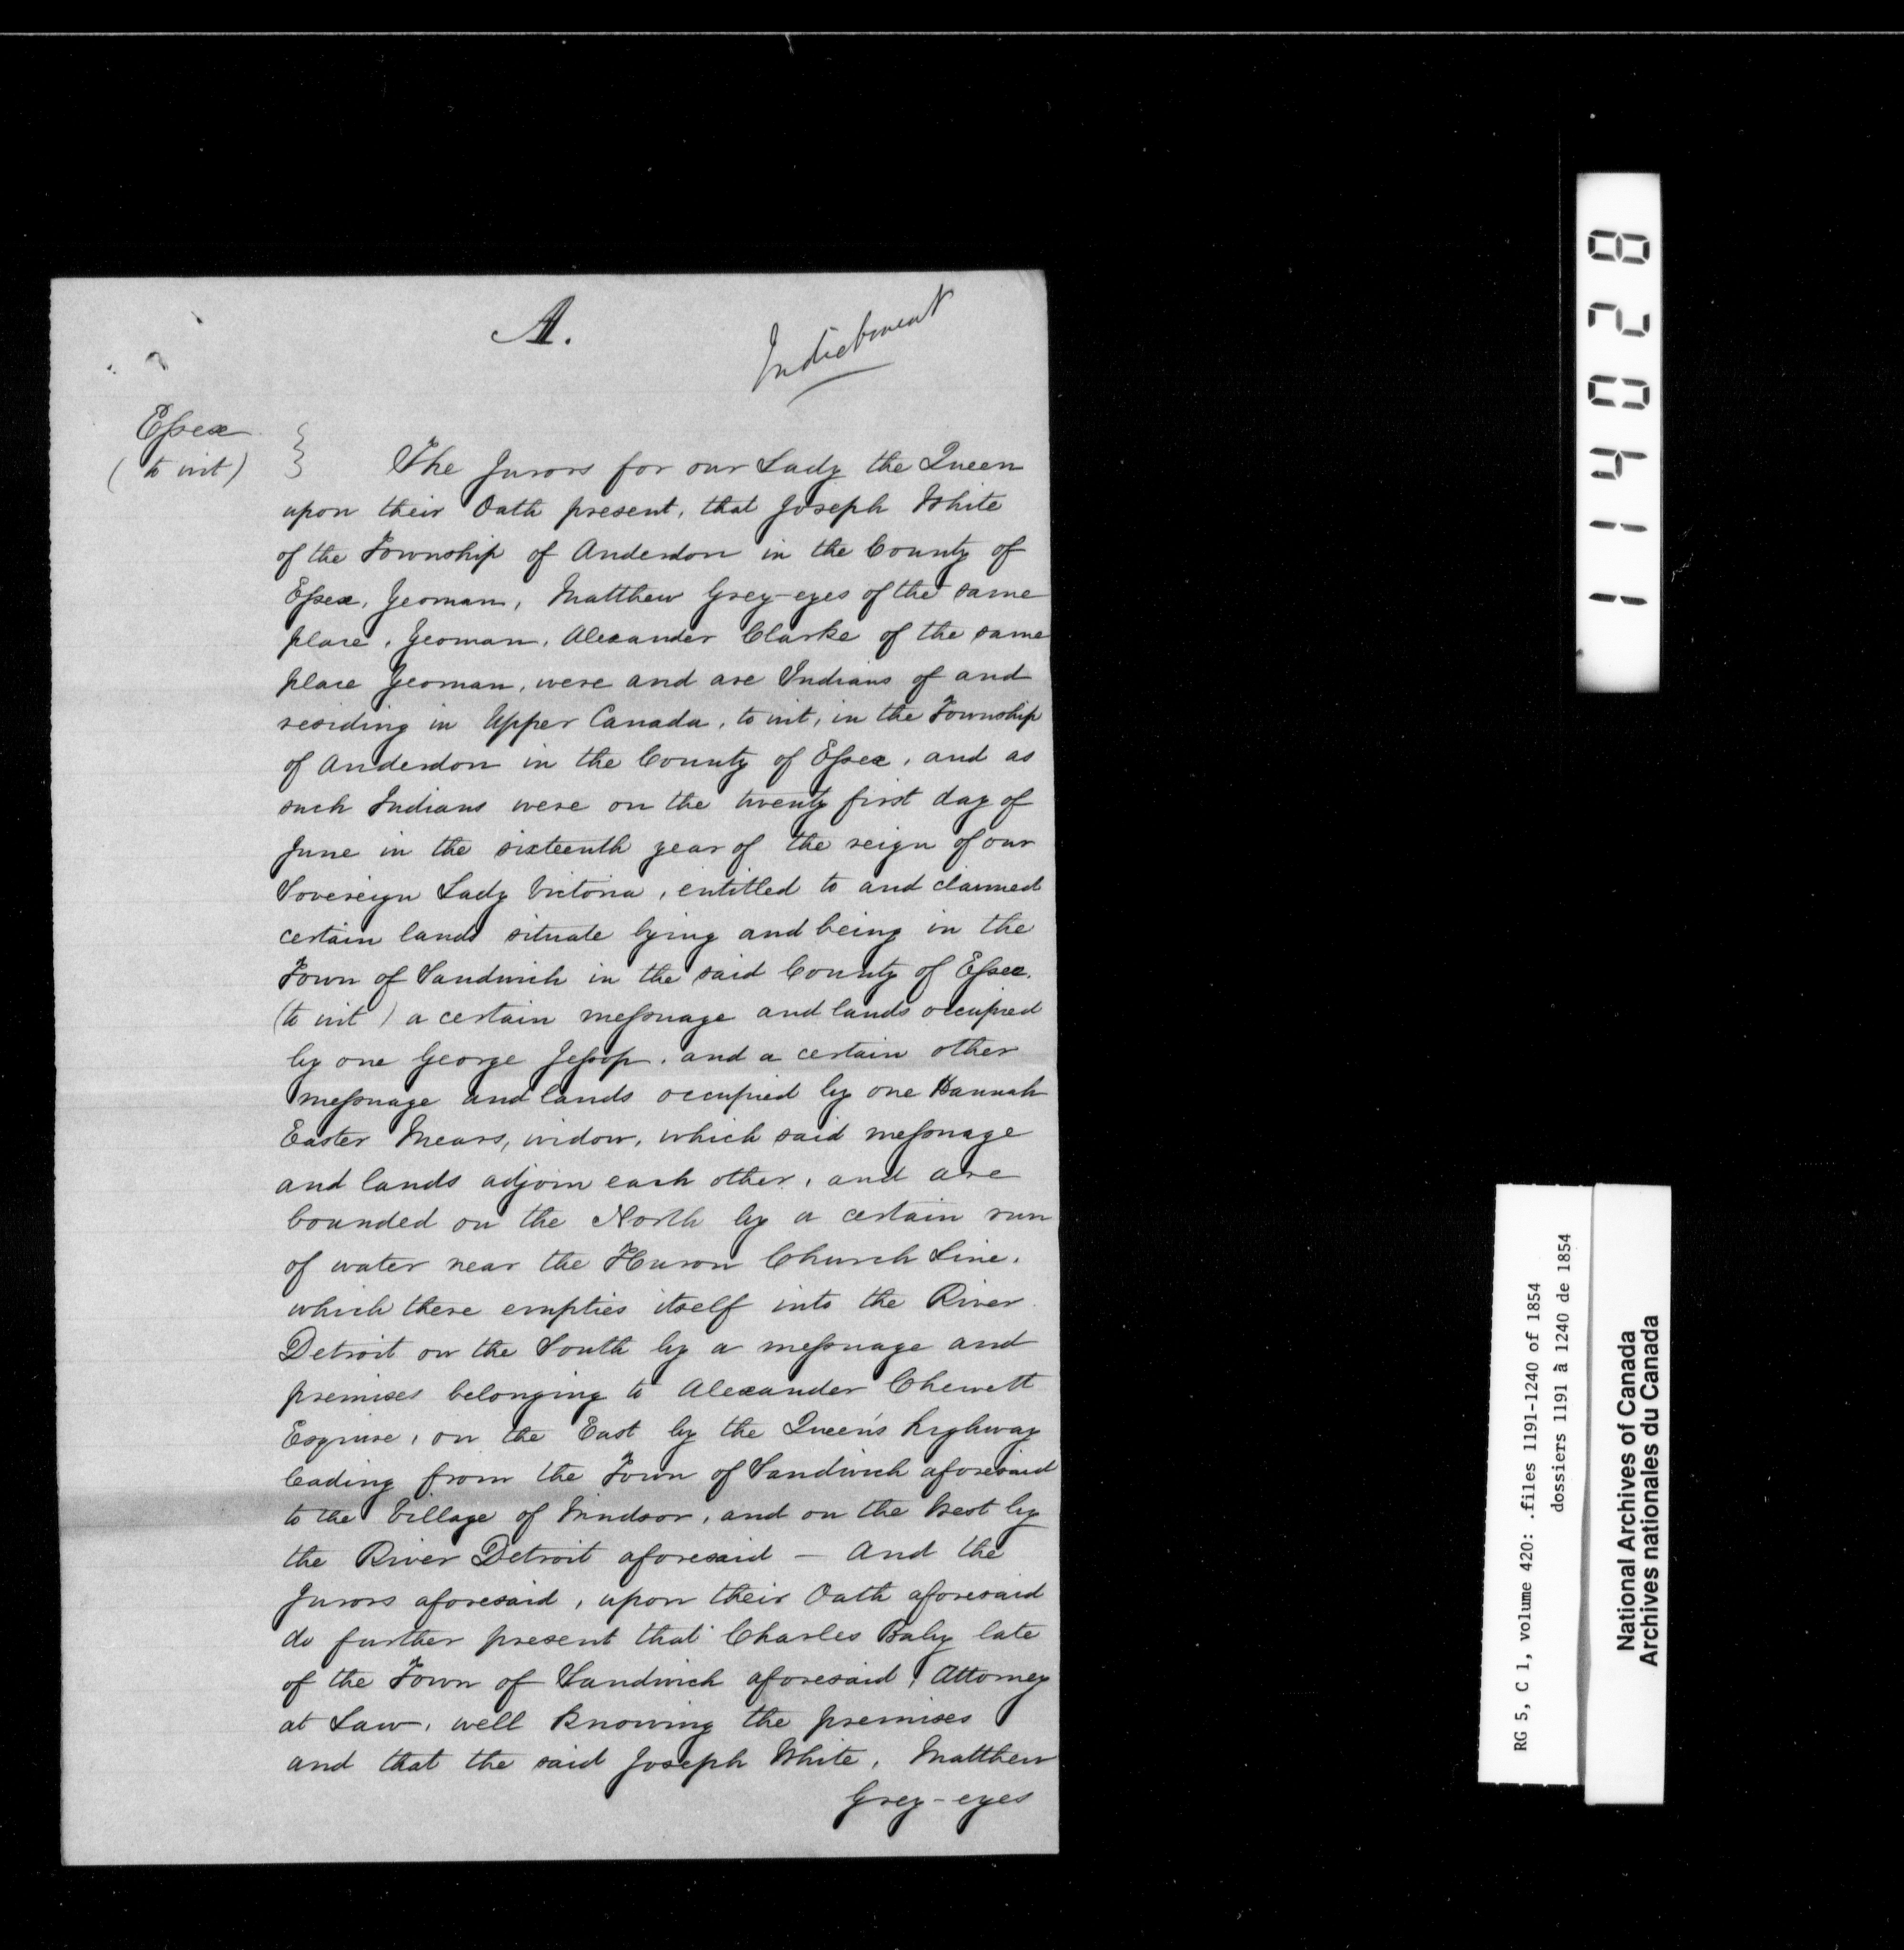 A.
Indictment
Essex
(to wit)
The Jurors for our Lady the Queen
upon their Oath present, that Joseph White
of the Township of Anderdon in the County of
Essex, Yeoman, Matthew Grey-eyes of the same
place, Yeoman, Alexander Clarke of the same
place Yeoman, were and are Indians of and
residing in Upper Canada, to wit, in the Township
of Anderdon in the County of Essex, and as
such Indians were on the twenty first day of
June in the sixteenth year of the reign of our
Sovereign Lady Victoria, entitled to and claimed
certain lands situate lying and being in the
Town of Sandwich in the said County of Essex.
(to wit) a certain messuage and lands occupied
by one George Jessop, and a certain other
messuage and lands occupied by one Hannah
Easter Mears, widow, which said messuage
and lands adjoin each other, and are
bounded on the North by a certain run
of water near the Huron Church Line,
which there empties itself into the River
Detroit on the South by a messuage and
premises belonging to Alexander Chewett
Esquire, on the East by the Queen's highway
leading from the Town of Sandwich aforesaid
to the Village of Windsor, and on the West by
the River Detroit aforesaid — And the
Jurors aforesaid, upon their Oath aforesaid
do further present that Charles Baby late
of the Town of Sandwich aforesaid, Attorney
at Law, well knowing the premises
and that the said Joseph White, Matthew
Grey-eyes
114028
RG 5, C 1, volume 420: .files 1191-1240 of 1854
dossiers 1191 à 1240 de 1854
National Archives of Canada
Archives nationales du Canada